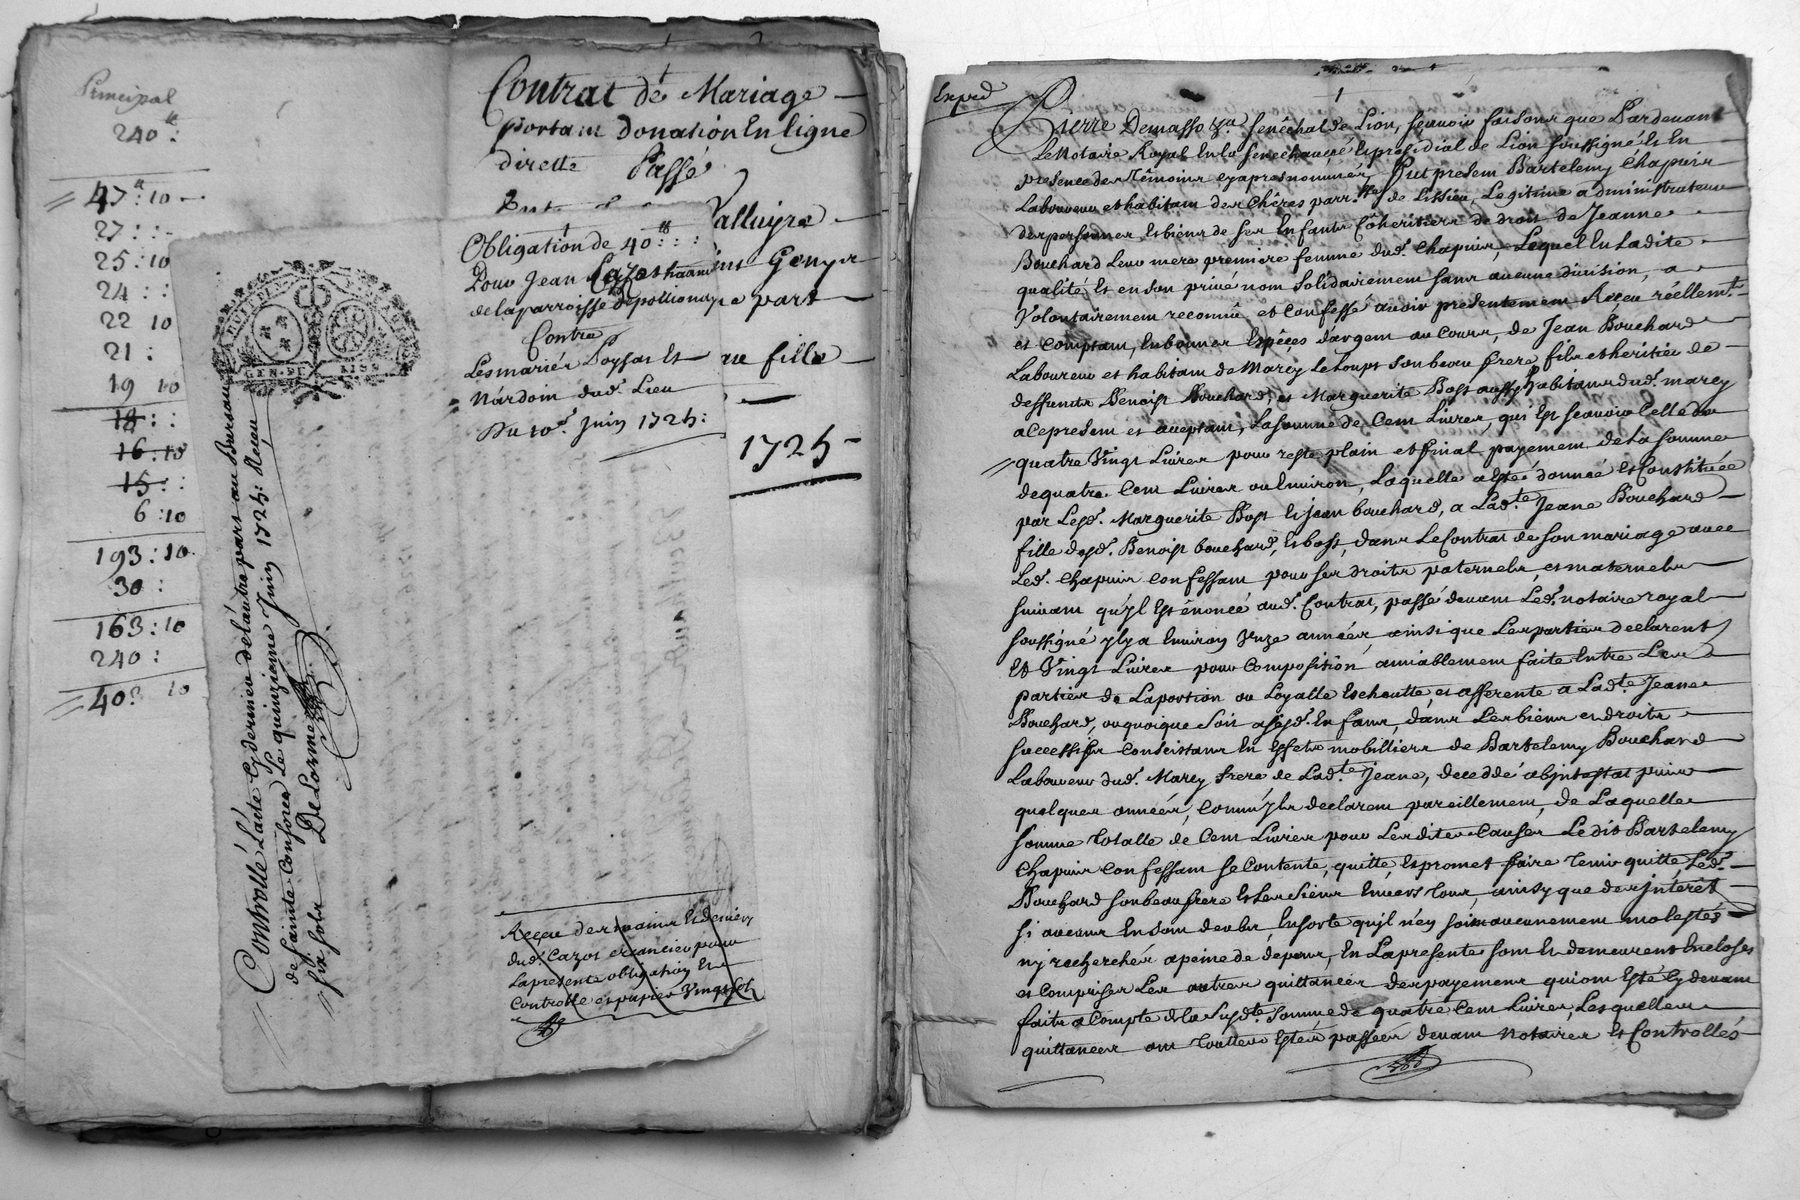 Principal
240 ᵗᵗ :
47 ᵗᵗ : 10
27 : :
25 : 10
24 : :
22 10
21 :
19 10
18 : :
16 : 10
15 : :
6 : 10
193 : 10
30 :
163 : 10
240 :
403 10
Contrat de Mariage
portant Donation En ligne
directe Passé
Valluyre
Genyr
part
fille
1725
Obligation de 40 ᵗᵗ : : :
Pour Jean Cazot
de la parroisse de pollionay
Contre
Les mariés Poyssat Et
Nardoin dud. Lieu
Du 10e. Juin 1725 :
GEN. DE LION
Controllé L'acte Cy dernier de l'autre part au Bureau
de Sainte Consorce Le quinzieme Juin 1725 : Receu
six sols DeLorme
Receu des mains Et deniers
dud. Cazot creancier pour
La presente obligation Et
Controlle et papier Vingt sols
Exped
Pierre Demasso Sgr. Senêchal de Lion, sçavoir faisons que Pardevant
Le Notaire Royal En la Senechaucée Et presidial de Lion soussigné Et En
presence des Têmoins cy apres nommés, Fut present Bartelemy Chapuis
Laboureur et habitant des Chêres parr.sse de Lissieu, Legitime administrateur
des personnes Et biens de ses Enfants Cohéritiers de droit de Jeanne
Bouchard Leur mere premiere femme dud. Chapuis, Lequel En Ladite
qualité Et en son privé nom solidairement sans aucune division, a
Volontairement reconnû et Confessé avoir presentement Receu réellemt.
et Comptant, En bonnes Espêces d'argent au Cours, de Jean Bouchard
Laboureur et habitant de Marcy Le Loup son beau frere fils et heritier de
deffunts Benoist Bouchard, et Marguerite Bost aussy habitans dud. marcy
a Ce present et acceptant, La somme de Cent Livres, qui Est sçavoir Celle de
quatre Vingt Livres pour reste, plain et final payement de La somme
de quatre Cent Livres ou Environ, Laquelle a Esté donneé et Constituée
par Lesd. Marguerite Bost Et jean bouchard, a Lad.te Jeanne Bouchard
fille desd. Benoist bouchard, Et bost, dans Le Contrat de son mariage avec
Led. Chapuis Confessant pour ses droits paternels, et maternels
suivant qu'yl Est énoncé aud. Contrat, passé devant Led. notaire royal
soussigné yl y a Environ Unze années, ainsi que Les parties declarent
Et Vingt Livres pour Composition amiablement faite Entre Les
parties de La portion ou Loyalle Escheutte et afferente a Lad.te Jeanne
Bouchard, ou quoique soit a sesd. Enfans, dans Les biens et droits
successifs Consistans En Effets mobilliers de Bartelemy Bouchard
Laboureur dud. Marcy frere de Lad.te jeanne, decedé abjntestat puis
quelques années, Comm'yls declarent pareillement, de Laquelle
somme Totalle de Cent Livres pour Les dites Causes Le dit Bartelemy
Chapuis Confessant se Contente, quitte, Et promet faire Tenir quitte, Led.
Bouchard son beau frere Et Les siens Envers Tous, ainsy que des jnterêt
si aucuns En sont deubs, En sorte qu'yl n'en soit aucunement molestés
ny recherchés a peine de depens, En La presente sont Et demeurent Encloses
et Comprises Les autres quittances des payemens qui ont Esté Cy devant
faits a Compte de La susd.te somme de quatre Cent Livres, Lesquelles
quittances ont Touttes Estés passées devant Notaires Et Controllés